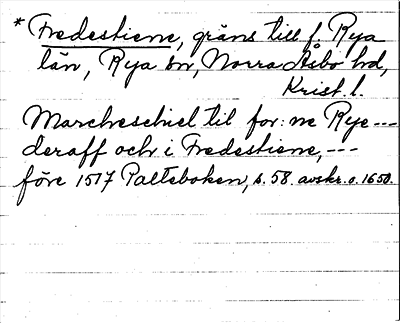 * Fredestiene, gräns till f. Rya
län, Rya sn, Norra Åsbo hd,
Krist. l.
Marcheschiel til for:ne Rye ---
deraff och i Fredestiene, ---
före 1517 Palteboken, s. 58. avskr. o. 1650.